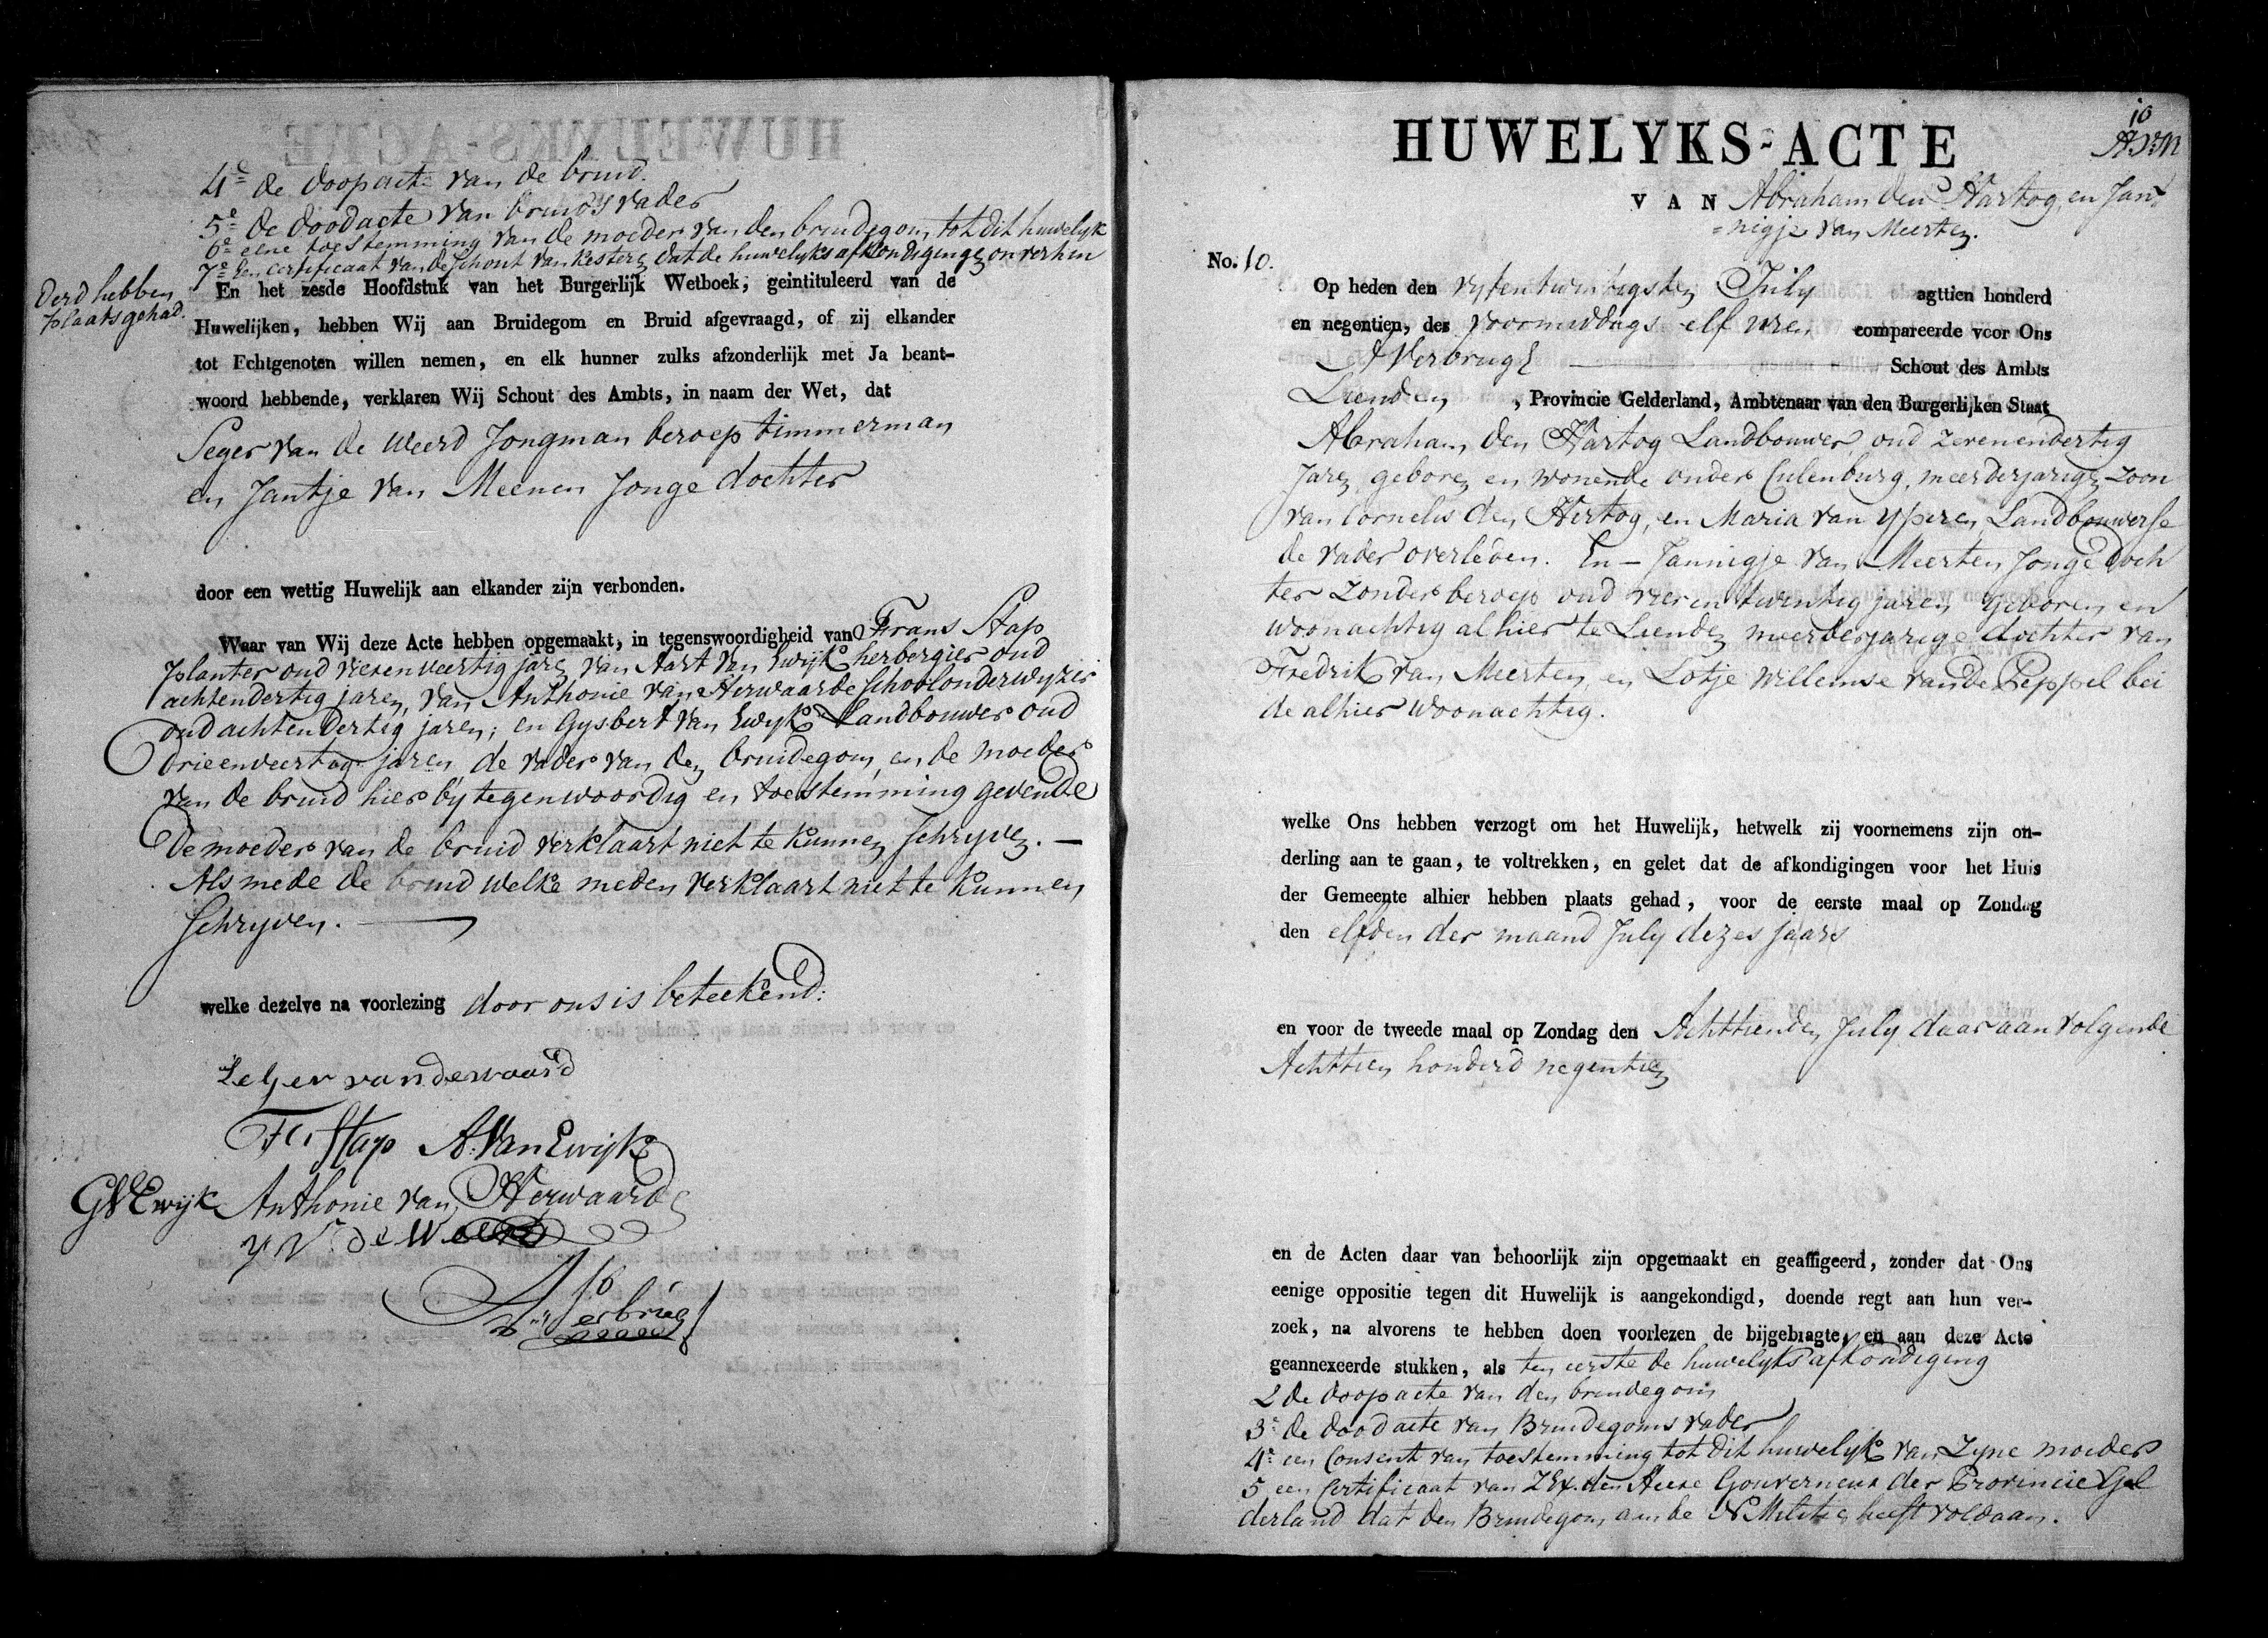 4e de doopacte van de bruid.
5e de doodacte van bruids vader
6e eene toestemming van de moeder van den bruidegom tot dit huwelyk
7e een certificaat van de schout van Kesteren dat de huwelyks afkondigingen onverhin
derd hebben
plaats gehad.
En het zesde Hoofdstuk van het Burgerlijk Wetboek, geintituleerd van de
Huwelijken, hebben Wij aan Bruidegom en Bruid afgevraagd, of zij elkander
tot Echtgenoten willen nemen, en elk hunner zulks afzonderlijk met Ja beant-
woord hebbende, verklaren Wij Schout des Ambts, in naam der Wet, dat
Seger van de Weerd Jongman beroep timmerman
en Jantje van Meenen Jonge dochter
door een wettig Huwelijk aan elkander zijn verbonden.
Waar van Wij deze Acte hebben opgemaakt, in tegenswoordigheid van Frans Stap
planter oud vierenveertig jare van Aart van Ewijk herbergier oud
achtendertig jaren, van Anthonie van Herwaarde schoolonderwyzer
oud achtendertig jaren; en Gysbert van Ewyk Landbouwer oud
drieenveertag jaren de vader van den bruidegom, en de moeder
van de bruid hier by tegenwoordig en toestemming gevende
De moeder van de bruid verklaart niet te kunnen schryven. —
Als mede de bruid welke meden verklaart niet te kunnen
schryven. —
welke dezelve na voorlezing door ons is beteekend:
Zeger van de waard
Fs Stap A. Van Ewijk
GVEwijk Anthonie van Herwaarde
V de Weerd
Verbrugh
10
AVM
HUWELYKS-ACTE
VAN Abraham den Hartog, en Jan
=nigje van Meerten.
No. 10.
Op heden den vyfentwintigsten July agttien honderd
en negentien, des voormiddags elf uren compareerde voor Ons
A Verbrugh — Schout des Ambts
Lienden, Provincie Gelderland, Ambtenaar van den Burgerlijken Staat
Abraham den Hartog Landbouwer, oud zevenendertig
Jaren, geboren en wonende onder Culenburg, meerderjarige Zoon
van Cornelis den Hertog, en Maria van Yperen Landbouwerse
de vader overleden. En — Jannigje van Meerten Jonge doch
ter Zonder beroep oud vierentwintig jaren geboren en
woonachtig alhier te Lienden meerderjarige dochter van
Fredrik van Meerten, en Lotje Willemse van de Peppel bei
de alhier woonachtig.
welke Ons hebben verzogt om het Huwelijk, hetwelk zij voornemens zijn on-
derling aan te gaan, te voltrekken, en gelet dat de afkondigingen voor het Huis
der Gemeente alhier hebben plaats gehad, voor de eerste maal op Zondag
den elfden der maand July dezes jaars
en voor de tweede maal op Zondag den Achttienden July daar aan volgende
Achttien honderd negentien
en de Acten daar van behoorlijk zijn opgemaakt en geaffigeerd, zonder dat Ons
eenige oppositie tegen dit Huwelijk is aangekondigd, doende regt aan hun ver-
zoek, na alvorens te hebben doen voorlezen de bijgebragte, en aan deze Acte
geannexeerde stukken, als ten eerste de huwelyks afkondiging
2 de doopacte van den bruidegom
3e de doodacte van Bruidegoms vader
4e een Consent van toestemming tot dit huwelyk van Zyne moeder
5 een Certificaat van Z Ex. den Heere Gouverneur der Provincie Gel
derland dat den Bruidegom aan de N Militie heeft voldaan.